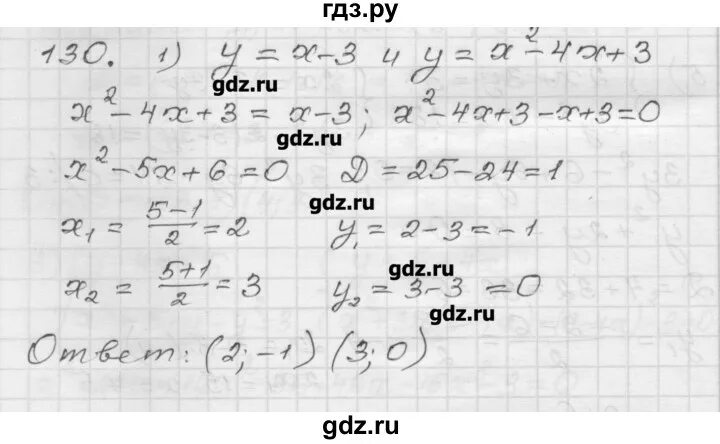 гдз.ру
130. 1) y = x-3 и y = x²-4x+3
gdz.ru
x²-4x+3 = x-3; x²-4x+3-x+3=0
gdz.ru
x²-5x+6=0 Д=25-24=1
gdz.ru
x₁ = (5-1)/2 = 2 y₁ = 2-3 = -1
gdz.ru
x₂ = (5+1)/2 = 3 y₂ = 3-3 = 0
gdz.ru
Ответ: (2; -1) (3; 0)
gdz.ru